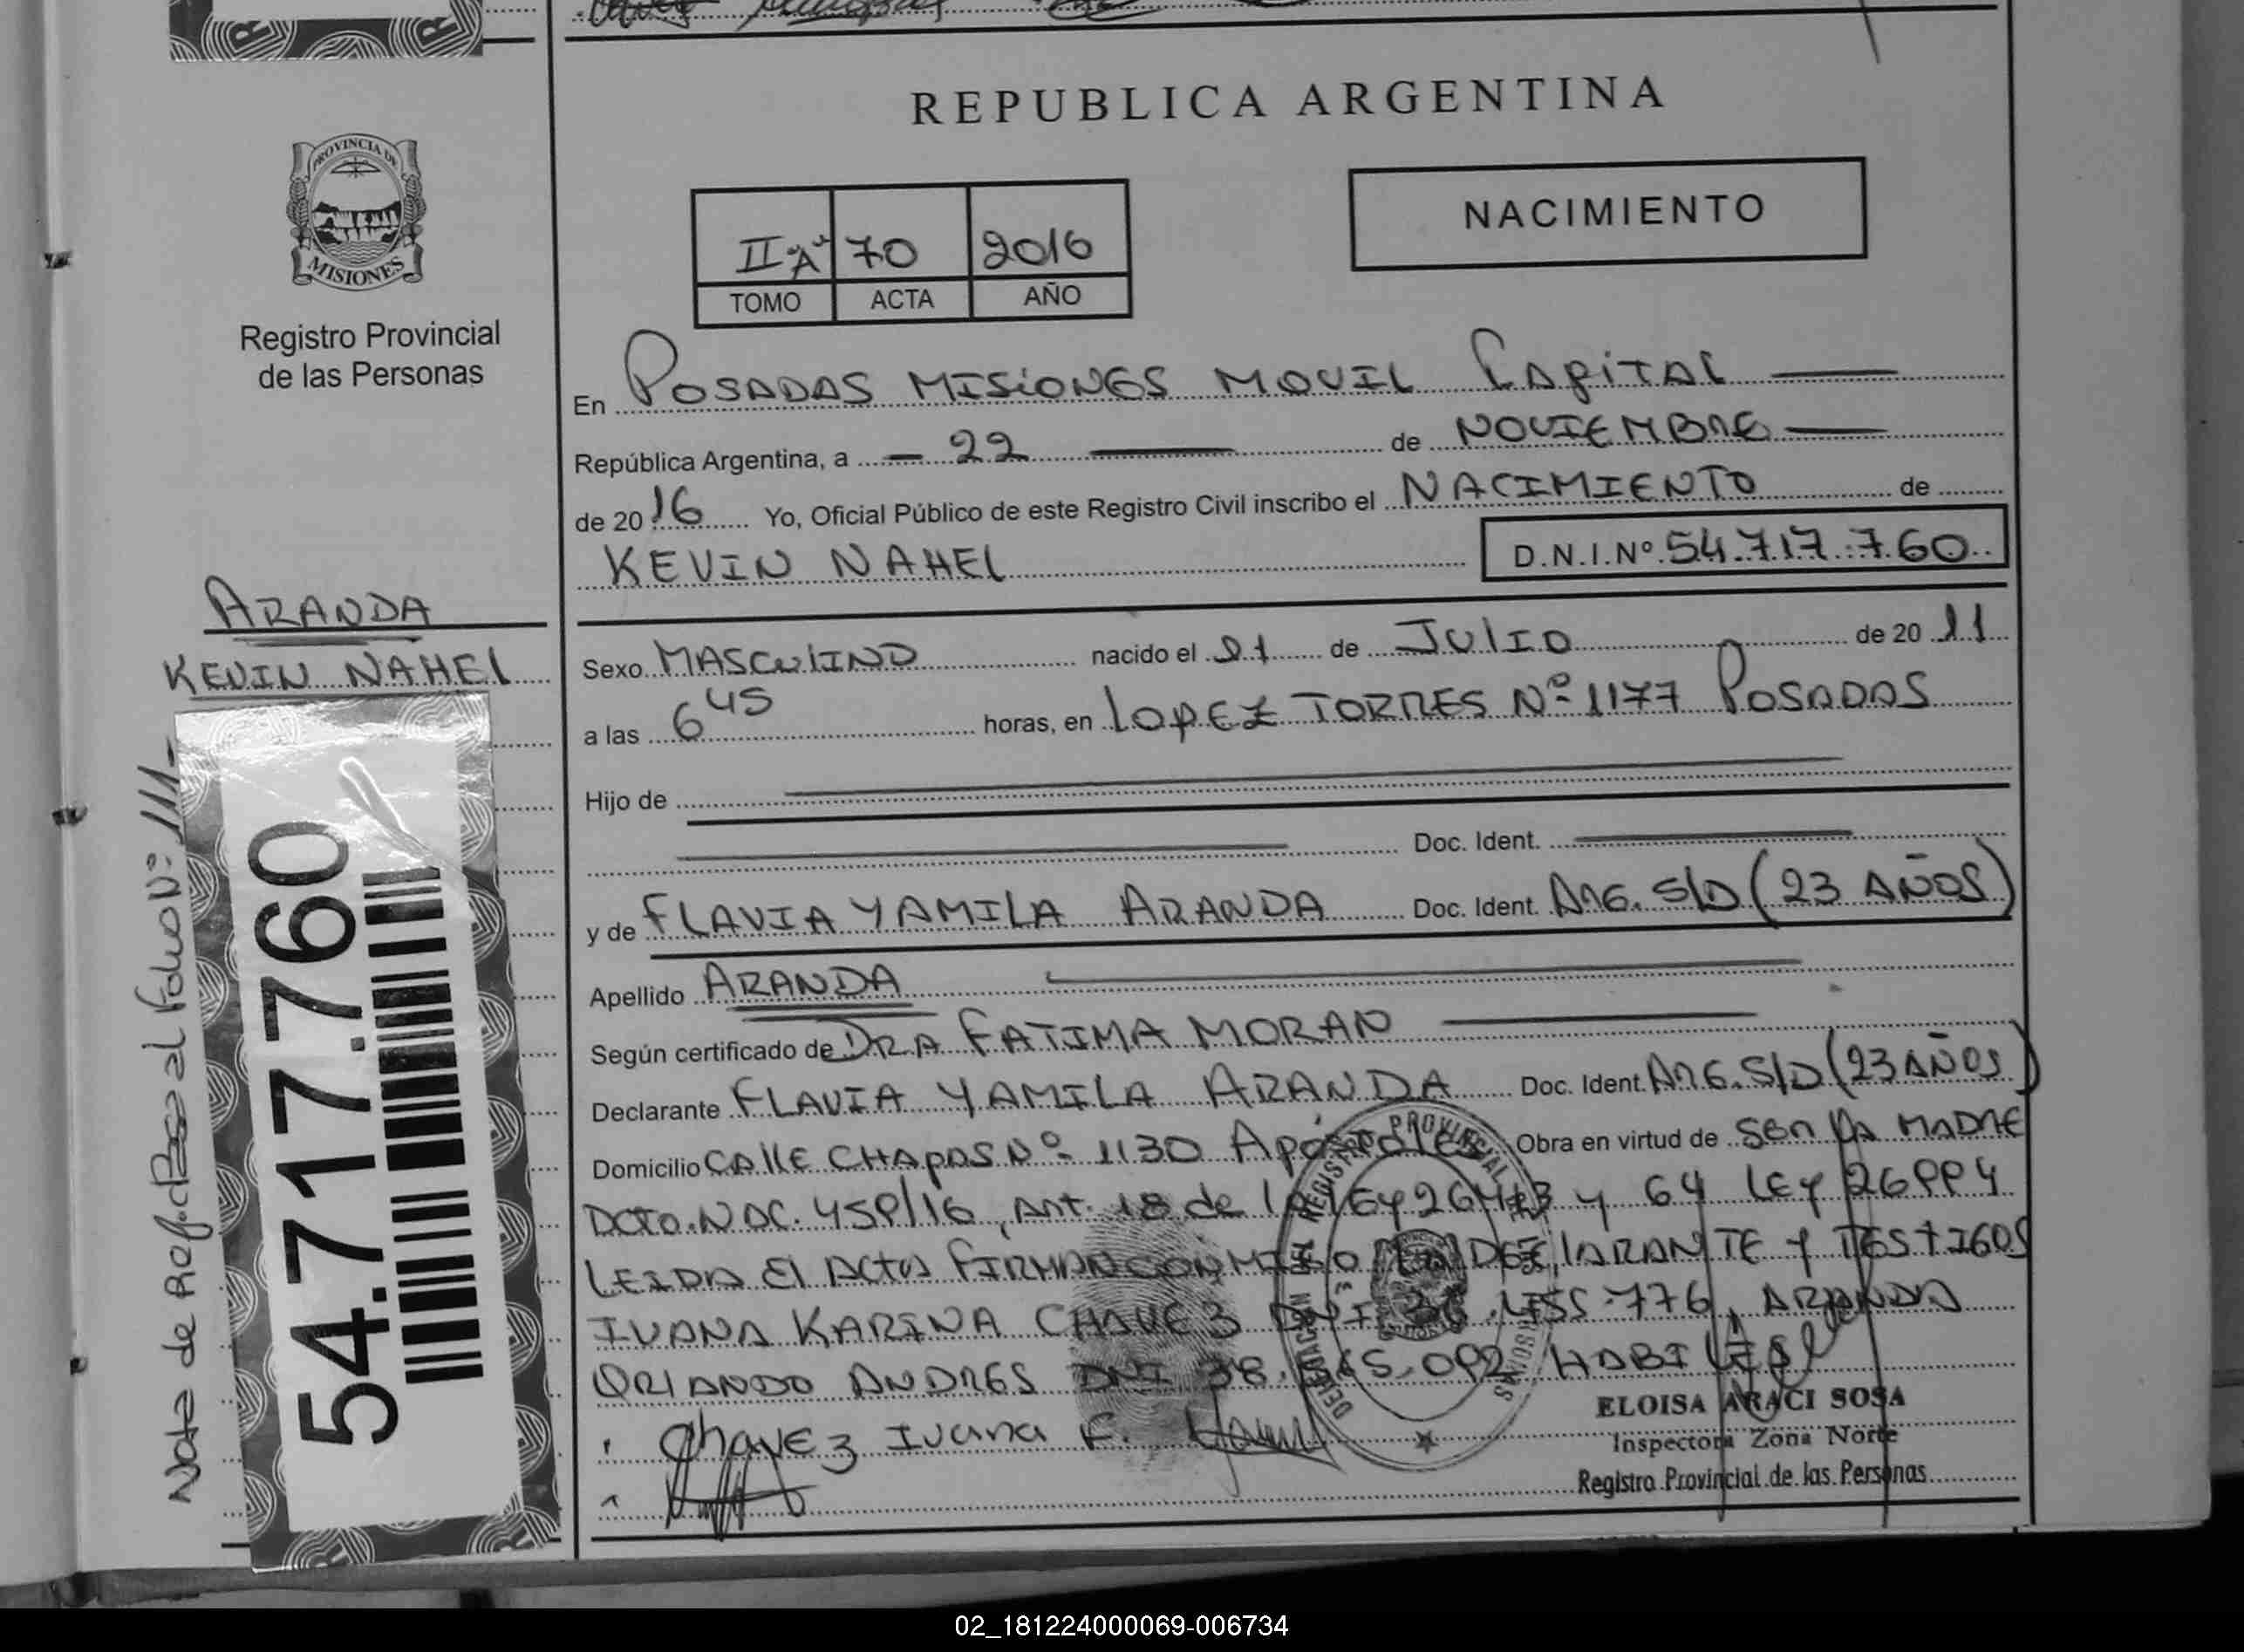 REPUBLICA ARGENTINA
PROVINCIA DE
MISIONES
Registro Provincial
de las Personas
NACIMIENTO
II "A" 70 2016
TOMO ACTA AÑO
En POSADAS MISIONES MOVIL CAPITAL
República Argentina, a - 22 de NOVIEMBRE
de 2016 Yo, Oficial Público de este Registro Civil inscribo el NACIMIENTO de
KEVIN NAHEL D.N.I.Nº 54.717.760
ARANDA
KEVIN NAHEL
Sexo MASCULINO nacido el 21 de JULIO de 2011
a las 6 45 horas, en LOPEZ TORRES Nº 1177 POSADAS
Hijo de
Doc. Ident.
y de FLAVIA YAMILA ARANDA Doc. Ident. ARG. S/D (23 AÑOS)
Apellido ARANDA
Según certificado de DRA FATIMA MORAN
Declarante FLAVIA YAMILA ARANDA Doc. Ident. ARG. S/D (23 AÑOS)
Domicilio CALLE CHAPAS Nº 1130 Apóstoles Obra en virtud de SER LA MADRE
DCTO. NAC. 459/16, Art. 18 de LEY 26413 y 64 LEY 26994
LEIDA El ACTA FIRMAN CON MIGO LA DECLARANTE Y TESTIGOS
IVANA KARINA CHAVEZ DNI .455.776, ARANDA
ORLANDO ANDRES DNI 38. .092 HABILES
Chavez Ivana K.
ELOISA ARACI SOSA
Inspectora Zona Norte
Registro Provincial de las Personas
54.717.760
Nota de Ref. Pasa al Folio Nº: 111-
REGISTRO PROVINCIAL
02_181224000069-006734